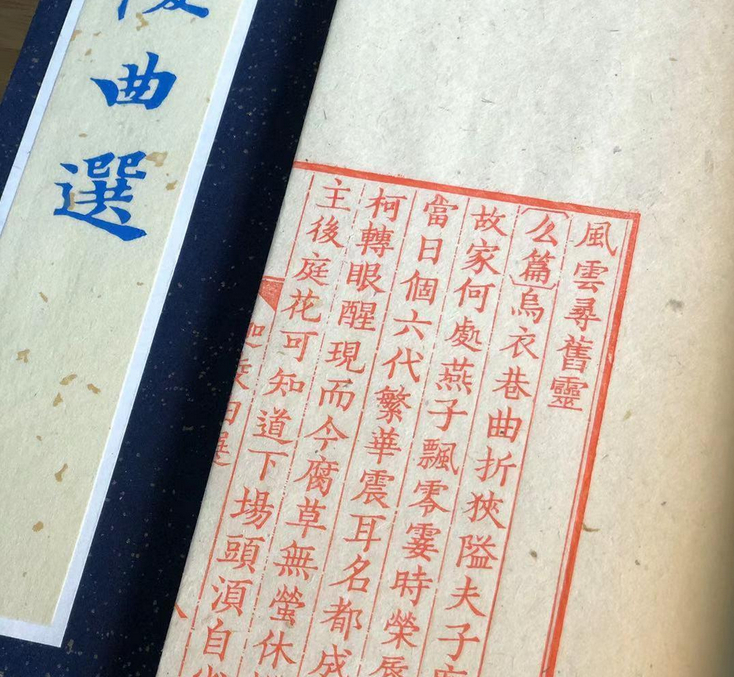 曲選
風雲尋舊靈
〔么篇〕烏衣巷曲折狹隘夫子
故家何處燕子飄零霎時榮
當日個六代繁華震耳名都成
柯轉眼醒現而今腐草無螢休
主後庭花可知道下場頭湏自